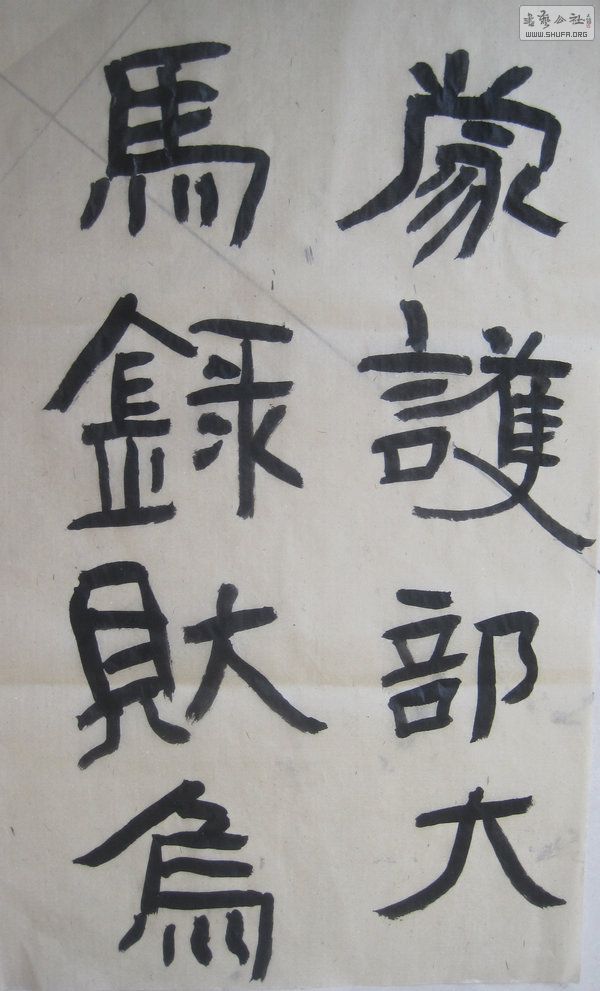 蒙護部大
馬錄財烏
書藝公社
WWW.SHUFA.ORG